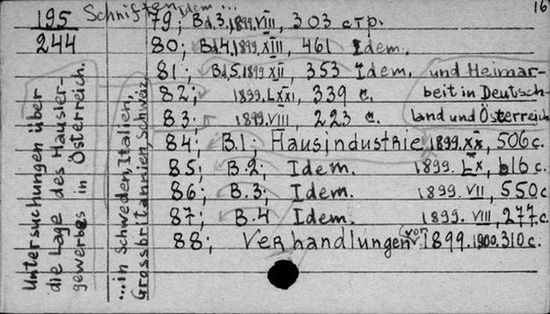 195 Schriften idem... 16
244
79; Bd.3, 1899.VIII, 303 стр.
80; Bd4, 1899, XIII, 461 Idem.
81; Bd5, 1899 XII, 353 Idem. und Heimar-
82; 1899. LXXI, 339 с. beit in Deutsch-
83; 1899. VIII, 223 с. land und Österreich
84; B.1; Hausindustrie 1899. XX, 506 с.
85; B.2; Idem. 1899. LX, 616 с.
86; B.3; Idem. 1899. VII, 550 с
87; B.4 Idem. 1899. VIII, 277 с.
88; Verhandlungen von 1899. 1900. 310 с.
Untersuchungen über
die Lage des Hausier-
gewerbes in Österreich.
...in Schweden, Italien,
Grossbritannien, Schweiz